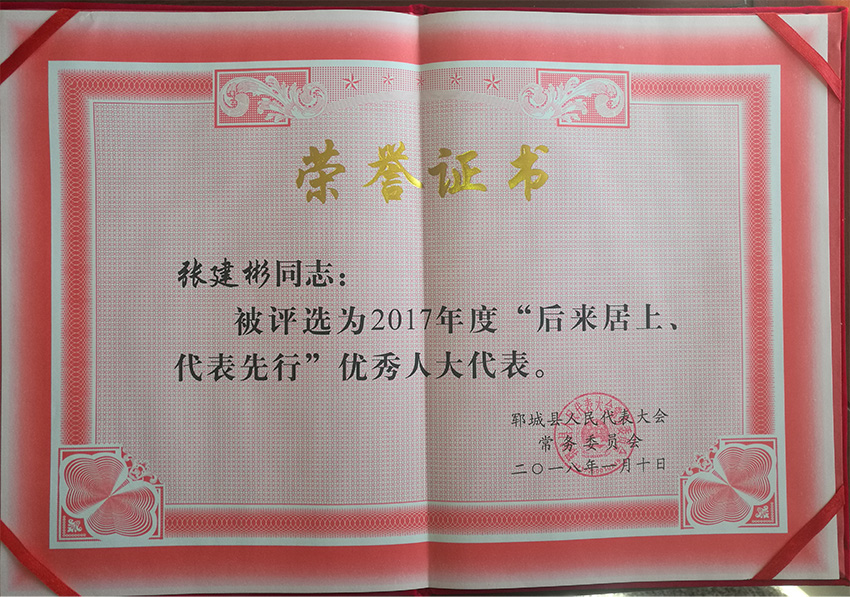 荣誉证书
张建彬同志：
被评选为2017年度“后来居上、
代表先行”优秀人大代表。
郓城县人民代表大会
常务委员会
二〇一八年一月十日